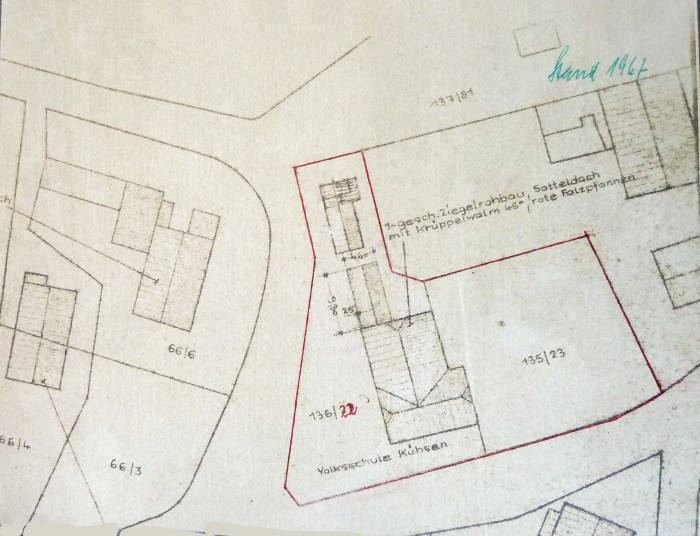 Stand 1967
137/81
1-gesch. Ziegelrohbau, Satteldach
mit Krüppelwalm 45° rote Falzpfannen
ch
25
66/6
135/23
136/22
66/4
66/3
Volksschule Kühsen